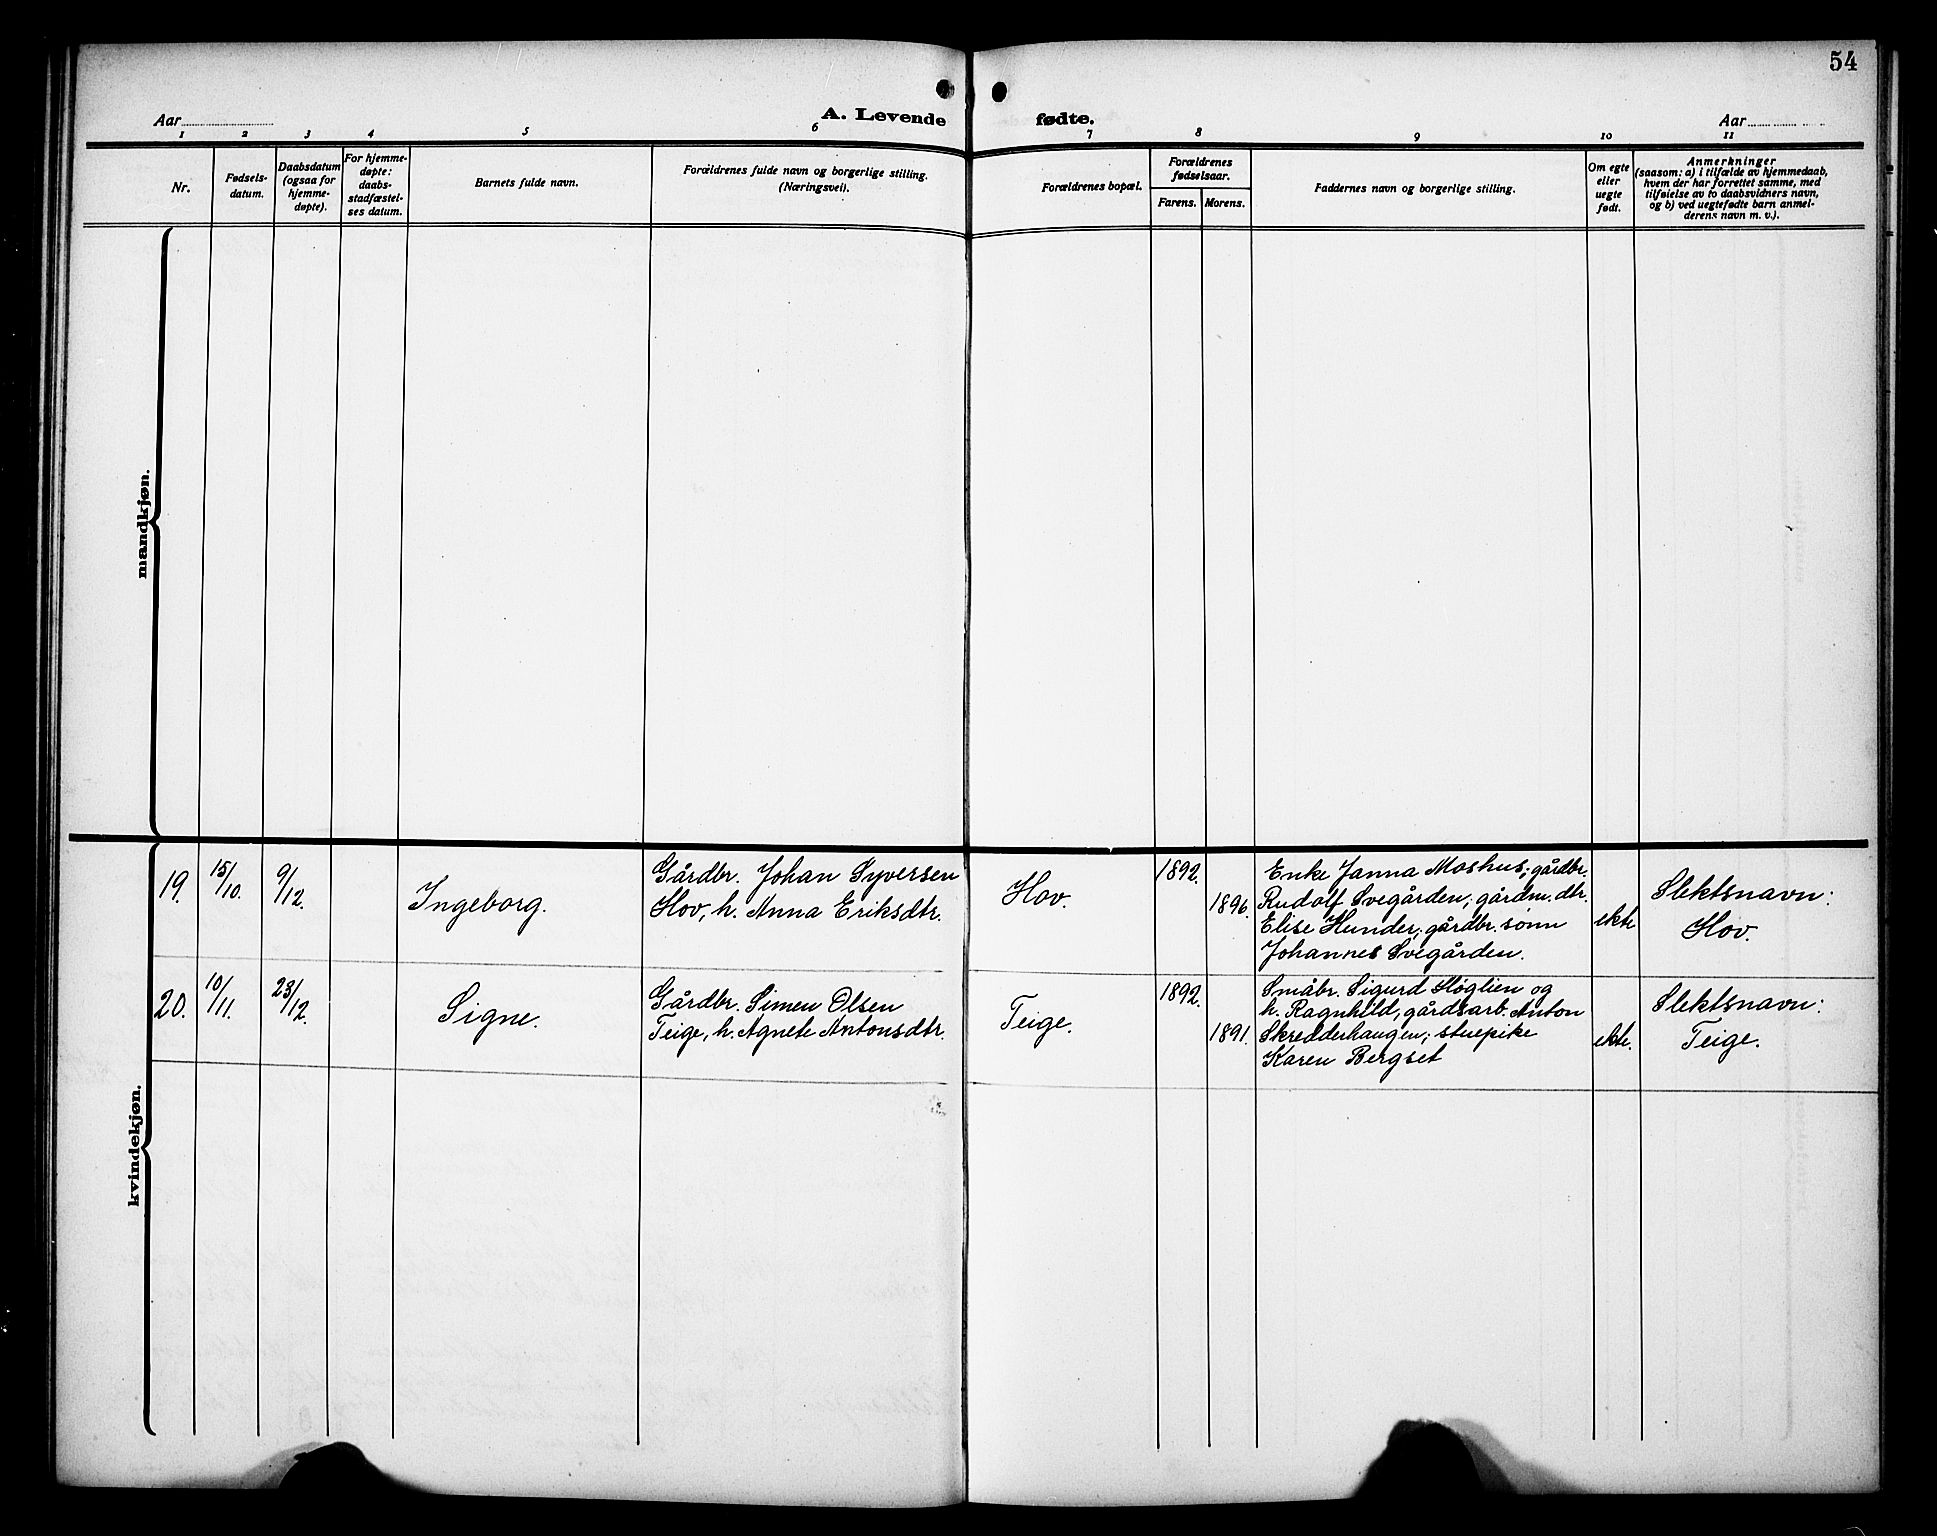 54
Aar
A. Levende fødte.
Aar
1 2 3 4 5 6 7 8 9 10 11
Nr.
Fødsels-
datum.
Daabsdatum
(ogsaa for
hjemme-
døpte).
For hjemme-
døpte:
daabs-
stadfæstel-
ses datum.
Barnets fulde navn.
Forældrenes fulde navn og borgerlige stilling.
(Næringsvei).
Forældrenes bopæl.
Forældrenes
fødselsaar.
Farens. Morens.
Faddernes navn og borgerlige stilling.
Om egte
eller
uegte
født.
Anmerkninger
(saasom: a) i tilfælde av hjemmedaab,
hvem der har forrettet samme, med
tilføielse av to daabsvidners navn,
og b) ved uegtefødte barn anmel-
derens navn m. v.).
mandkjøn.
kvindekjøn.
19.
15/10.
9/12.
Ingeborg.
Gårdbr. Johan Syversen
Hov, h. Anna Eriksdtr.
Hov.
1892.
1896.
Enke Janna Moshus; gårdbr.
Rudolf Svegården; gårdm. dtr.
Elise Hunder; gårdbr. sønn
Johannes Svegården.
ekte
Slektsnavn:
Hov.
20.
10/11.
23/12.
Signe.
Gårdbr. Simen Olsen
Teige, h. Agnete Antonsdtr.
Teige.
1892.
1891.
Småbr. Sigurd Høglien og
h. Ragnhild, gårdsarb. Anton
Skredderhaugen; stuepike
Karen Bergset
ekte.
Slektsnavn:
Teige.